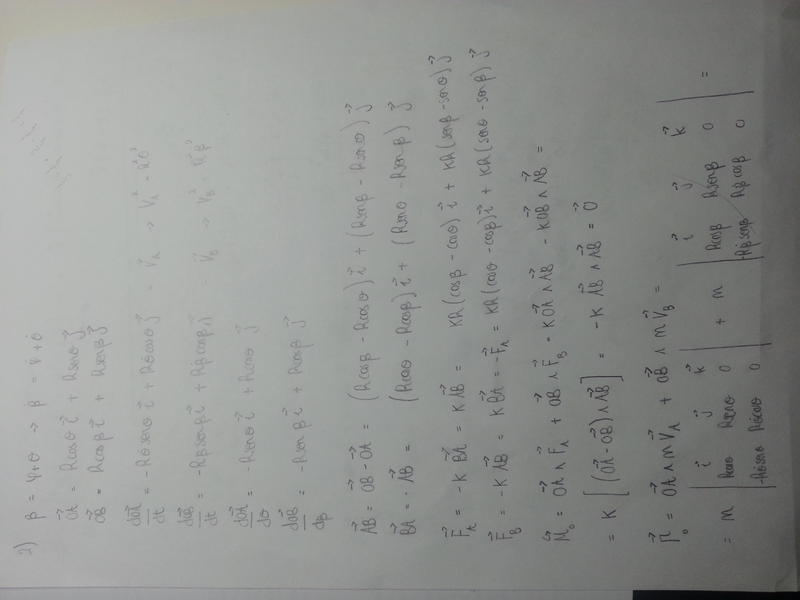 2) β = φ+θ → β̇ = φ̇ + θ̇
OA⃗ = Rcosθ i⃗ + Rsenθ j⃗
OB⃗ = Rcosβ i⃗ + Rsenβ j⃗
dOA⃗/dt = -Rθ̇senθ i⃗ + Rθ̇cosθ j⃗ = V⃗_A → V_A² = R²θ̇²
dOB⃗/dt = -Rβ̇senβ i⃗ + Rβ̇cosβ j⃗ = V⃗_B → V_B² = R²β̇²
dOA⃗/dθ = -Rsenθ i⃗ + Rcosθ j⃗
dOB⃗/dβ = -Rsenβ i⃗ + Rcosβ j⃗
AB⃗ = OB⃗ - OA⃗ = (Rcosβ - Rcosθ) i⃗ + (Rsenβ - Rsenθ) j⃗
BA⃗ = -AB⃗ = (Rcosθ - Rcosβ) i⃗ + (Rsenθ - Rsenβ) j⃗
F⃗_A = -K BA⃗ = K AB⃗ = KR(cosβ - cosθ) i⃗ + KR(senβ - senθ) j⃗
F⃗_B = -K AB⃗ = K BA⃗ = -F⃗_A = KR(cosθ - cosβ) i⃗ + KR(senθ - senβ) j⃗
M⃗_o = OA⃗ ∧ F⃗_A + OB⃗ ∧ F⃗_B = K OA⃗ ∧ AB⃗ - K OB⃗ ∧ AB⃗ =
= K [(OA⃗ - OB⃗) ∧ AB⃗] = -K AB⃗ ∧ AB⃗ = 0⃗
Γ⃗_o = OA⃗ ∧ mV⃗_A + OB⃗ ∧ mV⃗_B =
= m | i⃗ j⃗ k⃗ | + m | i⃗ j⃗ k⃗ | =
| Rcosθ Rsenθ 0 | | Rcosβ Rsenβ 0 |
| -Rθ̇senθ Rθ̇cosθ 0 | | -Rβ̇senβ Rβ̇cosβ 0 |